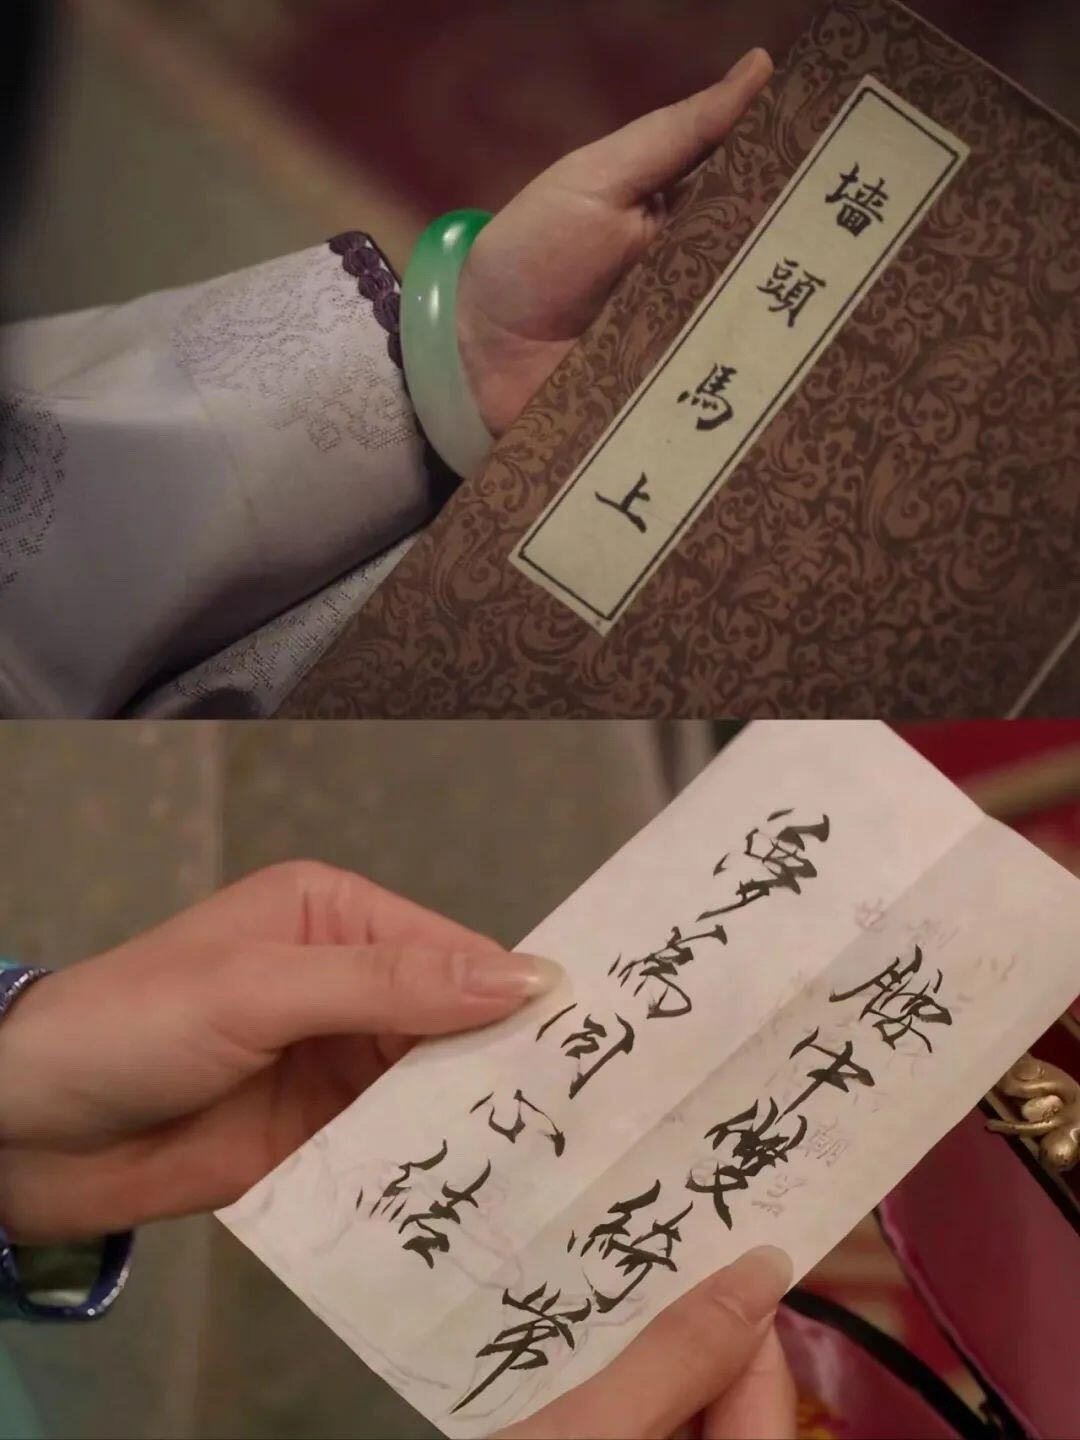 墙頭馬上
腰中雙綺帶
夢為同心結